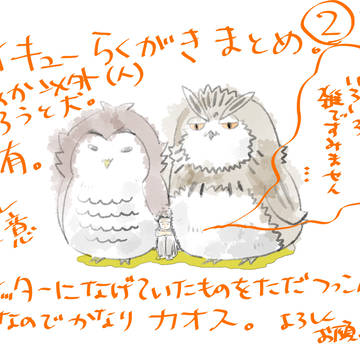 イキュー らくがきまとめ。②
か以外(人)
ろうと犬。
有。
意
雑ですみません
…
ッターになげていたものをただつっこ
なのでかなり カオス。よろしく
お願